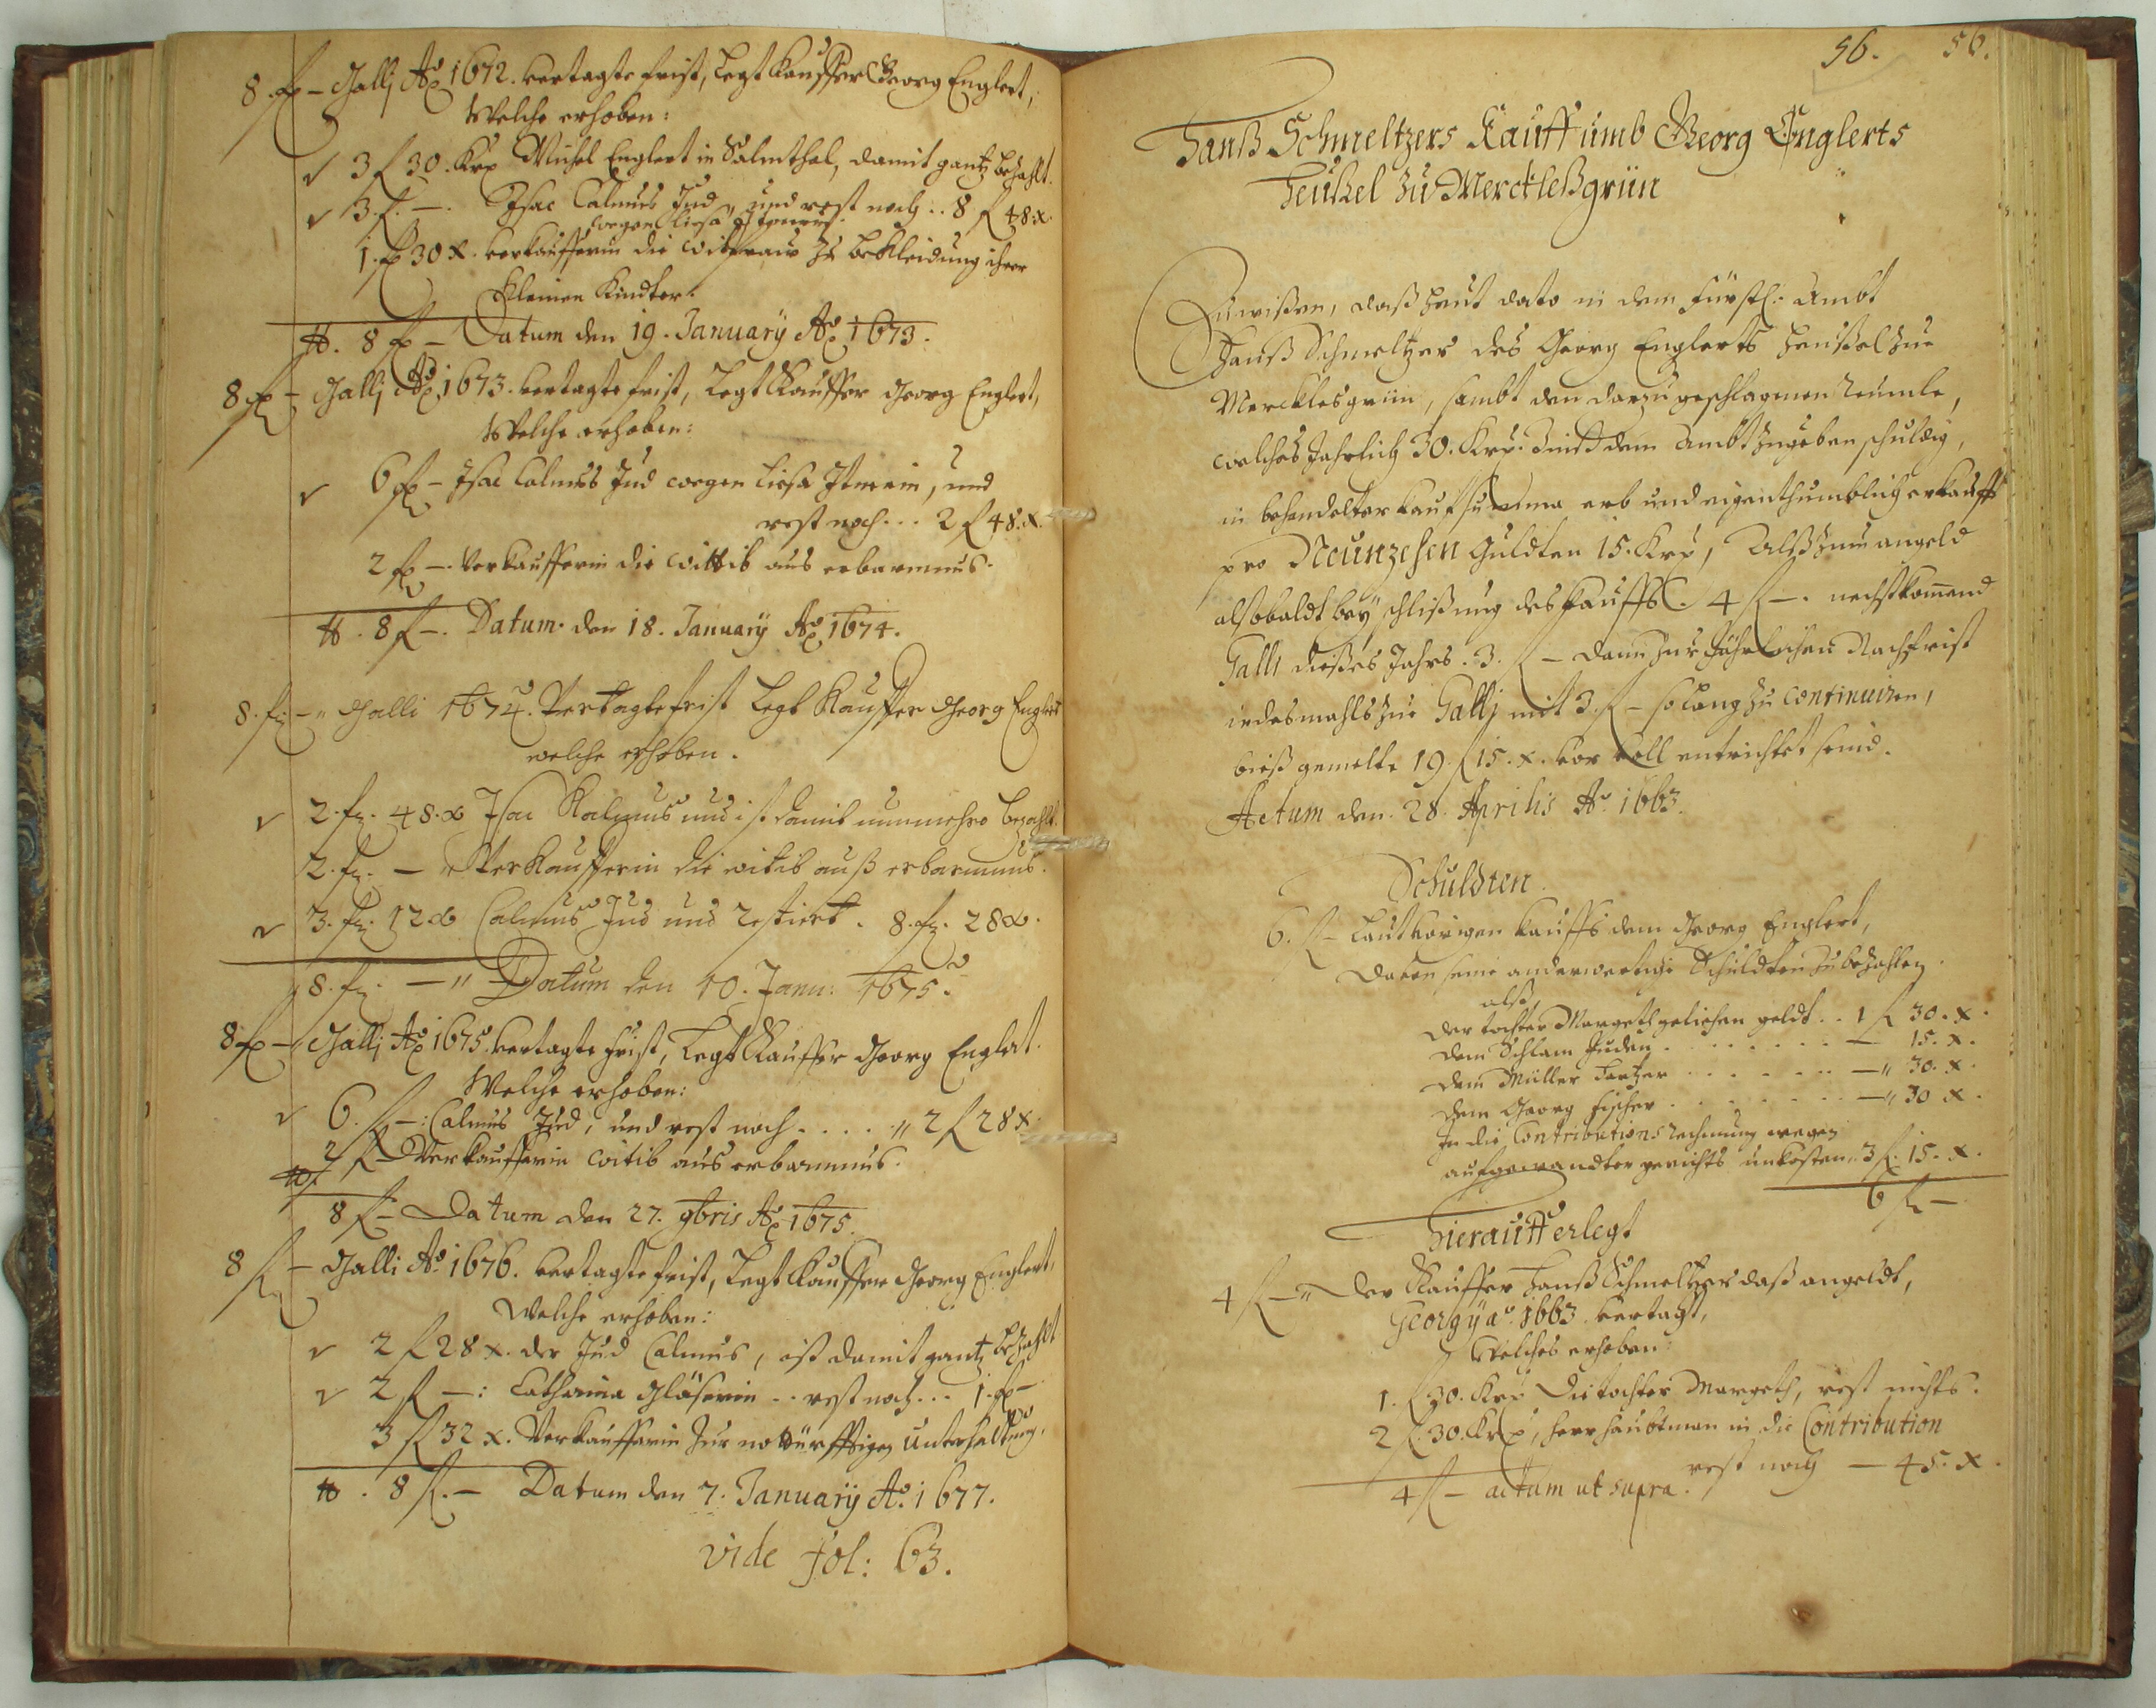 8. fl – Galli Ao 1672. vertagte frist, Legt Kauffer Georg Englert,
Welche erhoben:
3 fl 30. Kr Michel Englert in Salmthal, damit gantz bezahlt.
3. fl. –. Isac Calmus Jud, und rest noch .. 8 fl 48. x.
wegen Liesa
1. fl 30 x. verkaufferin die witfraw zu bekleidung ihrer
kleinen Kinder.
8 fl – Datum den 19. January Ao 1673.
8 fl – Galli Ao 1673. vertagte frist, Legt Kauffer Georg Englert,
Welche erhoben:
6 fl – Isac Calmus Jud wegen Liesa, und
rest noch ... 2 fl 48. x.
2 fl –. Verkaufferin die wittib aus erbarmnus.
8 fl –. Datum. den 18. January Ao 1674.
8. fl. – " Galli 1674. Vertagte frist Legt Kauffer Georg Englert
welche erhoben.
2. fl. 48. x Isac Kalmus und ist damit nunmehro bezahlt.
2. fl. – Verkaufferin die witib auß erbarmnus.
3. fl. 12 x Calmus Jud und restiert. 8. fl. 28 x.
8. fl. – " Datum den 10. Janu: 1675.
8 fl – Galli Ao 1675. vertagte frist, Legt Kauffer Georg Englert.
Welche erhoben:
6. fl –: Calmus Jud, und rest noch .... " 2 fl 28 x.
2 fl – Verkaufferin witib aus erbarmnus.
8 fl – Datum den 27. 9bris Ao 1675.
8 fl – Galli Ao 1676. vertagte frist, Legt Kauffer Georg Englert,
Welche erhoben:
2 fl 28 x. der Jud Calmus, ist damit gantz bezahlt
2 fl –: Catharina Gläserin .. rest noch ... 1. fl –
3 fl 32 x. Verkaufferin zur notürfftigen unterhaltung.
8 fl. – Datum den 7. January Ao. 1677.
vide fol: 63.
56. 56.
Hanß Schmeltzers Kauff umb Georg Englerts
Heußel zu Merckleßgrün
Zuwißen, daß heut dato in dem Fürstl: Ambt
Hanß Schmeltzer des Georg Englerts heußel zue
Mercklesgrün, sambt den darzu geschlagenen reumle,
welches Jahrlich 30. Kr. Zinß dem Ambt zugeben schuldig,
in behandelter kauf summa erb und eigenthumblich erkaufft
pro Neunzehen Gulden 15. Kr, Alß zum angeld
alsobaldt bey schließung des Kauffs. 4 fl –. nechstkomend
Galli dießes Jahrs. 3. fl – dann zur Jährlichen Nachfrist
iedesmahls zue Galli mit 3. fl – so lang zu continuiren,
bieß gemelte 19. fl 15. x. vor voll entrichtet seind.
Actum den. 28. Aprilis Ao. 1663.
Schuldten.
6. fl – Laut vorigen kauffs dem Georg Englert,
davon seine anderwertige Schuldten zu bezahlen.
alß,
der tochter Margeth geliehen geldt .. 1 fl 30. x.
dem Schlam Juden ....... – 15. x.
dem Müller ...... – " 30. x.
dem Georg Fischer ....... – " 30 x.
In die Contributions rechnung wegen
aufgewandter gerichts unkosten .. 3 fl. 15. x.
6 fl –
Hierauff erlegt
4 fl – " Der Kauffer Hanß Schmeltzer daß angeldt,
Georgy ao. 1663. vertagt,
Welches erhoben:
1. fl 30. Kr Die tochter Margeth, rest nichts.
2 fl. 30. Kr, herr haubtman in die Contribution
rest noch – 45. x.
4 fl – actum ut supra.